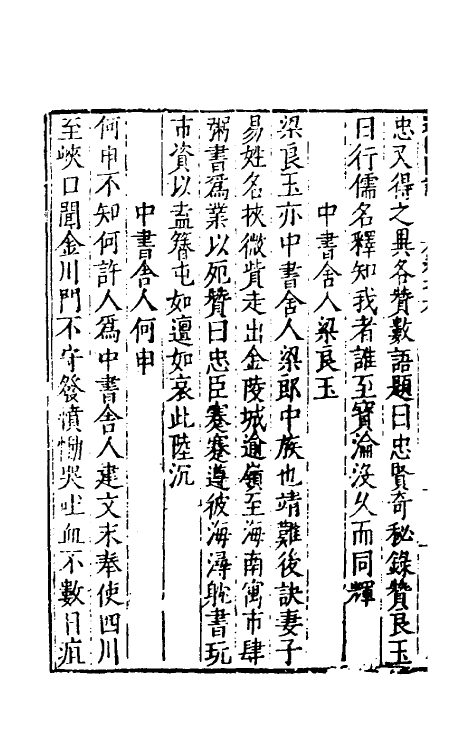 忠又得之異各贊數語題曰忠賢奇秘錄贊良玉
曰行儒名釋知我者誰至寳淪没久而同輝
中書舍人梁良玉
梁良玉亦中書舍人梁郎中族也靖難後訣妻子
易姓名挾微貲走出金陵城逾嶺至海南寓市肆
粥書爲業以死贊曰忠臣蹇蹇遵彼海潯耽書玩
市資以盍簪屯如邅如哀此陸沉
中書舍人何申
何申不知何許人爲中書舍人建文末奉使四川
至峽口聞金川門不守發憤慟哭吐血不數日疽